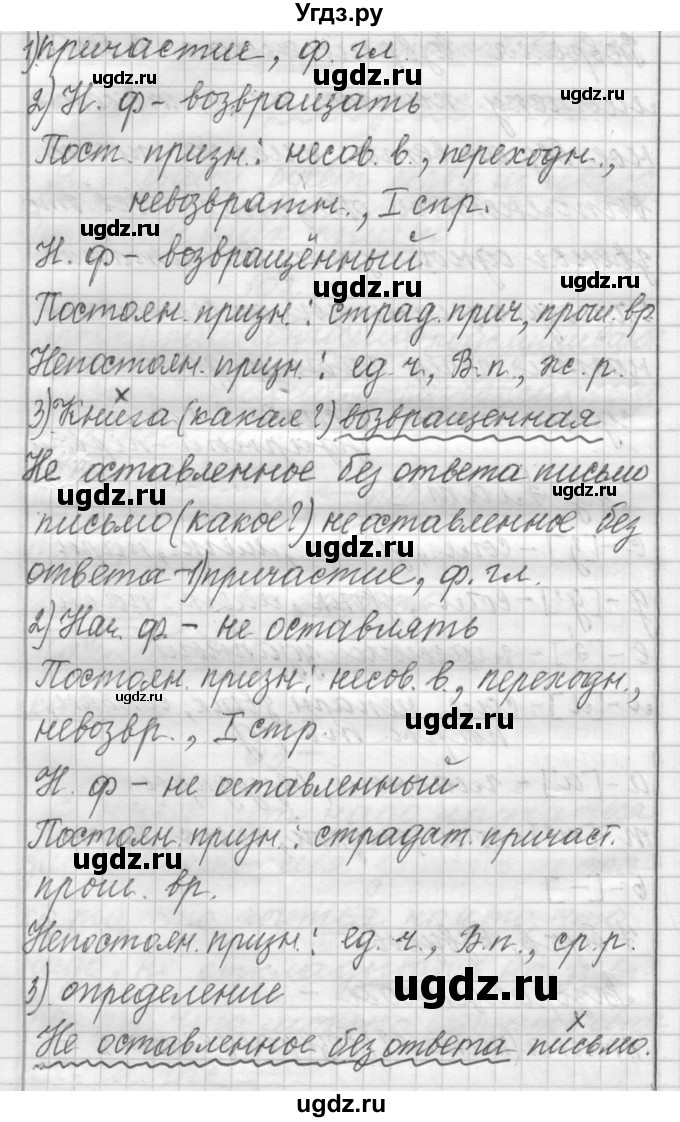 Угдз.ру
1) причастие, ф. гл.
2) Н. ф – возвращать
Пост. призн.: несов. в., переходн.,
невозвратн., I спр.
Н. ф – возвращённый
Постоян. призн.: страд. прич, прош. вр.
Непостоян. призн.: ед. ч., В. п., ж. р.
3) Книга (какая?) возвращенная
Не оставленное без ответа письмо
письмо (какое?) не оставленное без
ответа – 1) причастие, ф. гл.
2) Нач. ф. – не оставлять
Постоян. призн.: несов. в., переходн.,
невозвр., I спр.
Н. ф – не оставленный
Постоян. призн.: страдат. причаст.
прош. вр.
Непостоян. призн.: ед. ч., В. п., ср. р.
3) определение
Не оставленное без ответа письмо.
ugdz.ru